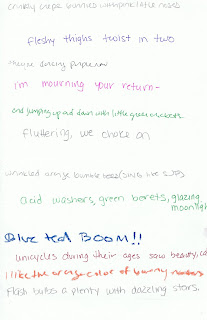 bubbled with pink little roses
fleshy thighs twist in two
they're dancing
i'm mourning your return-
and jumping up and down with little green crickets
fluttering, we choke on
wrinkled orange bumble bees
acid washers, green berets, glazing
moonligh
Blue teal BOOM!!
unicycles during their ages saw beauty,
i like the orange color of
Flash bulbs a plenty with dazzling stars.